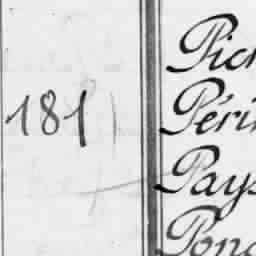 181
Pich
Péri
Pays
Pong